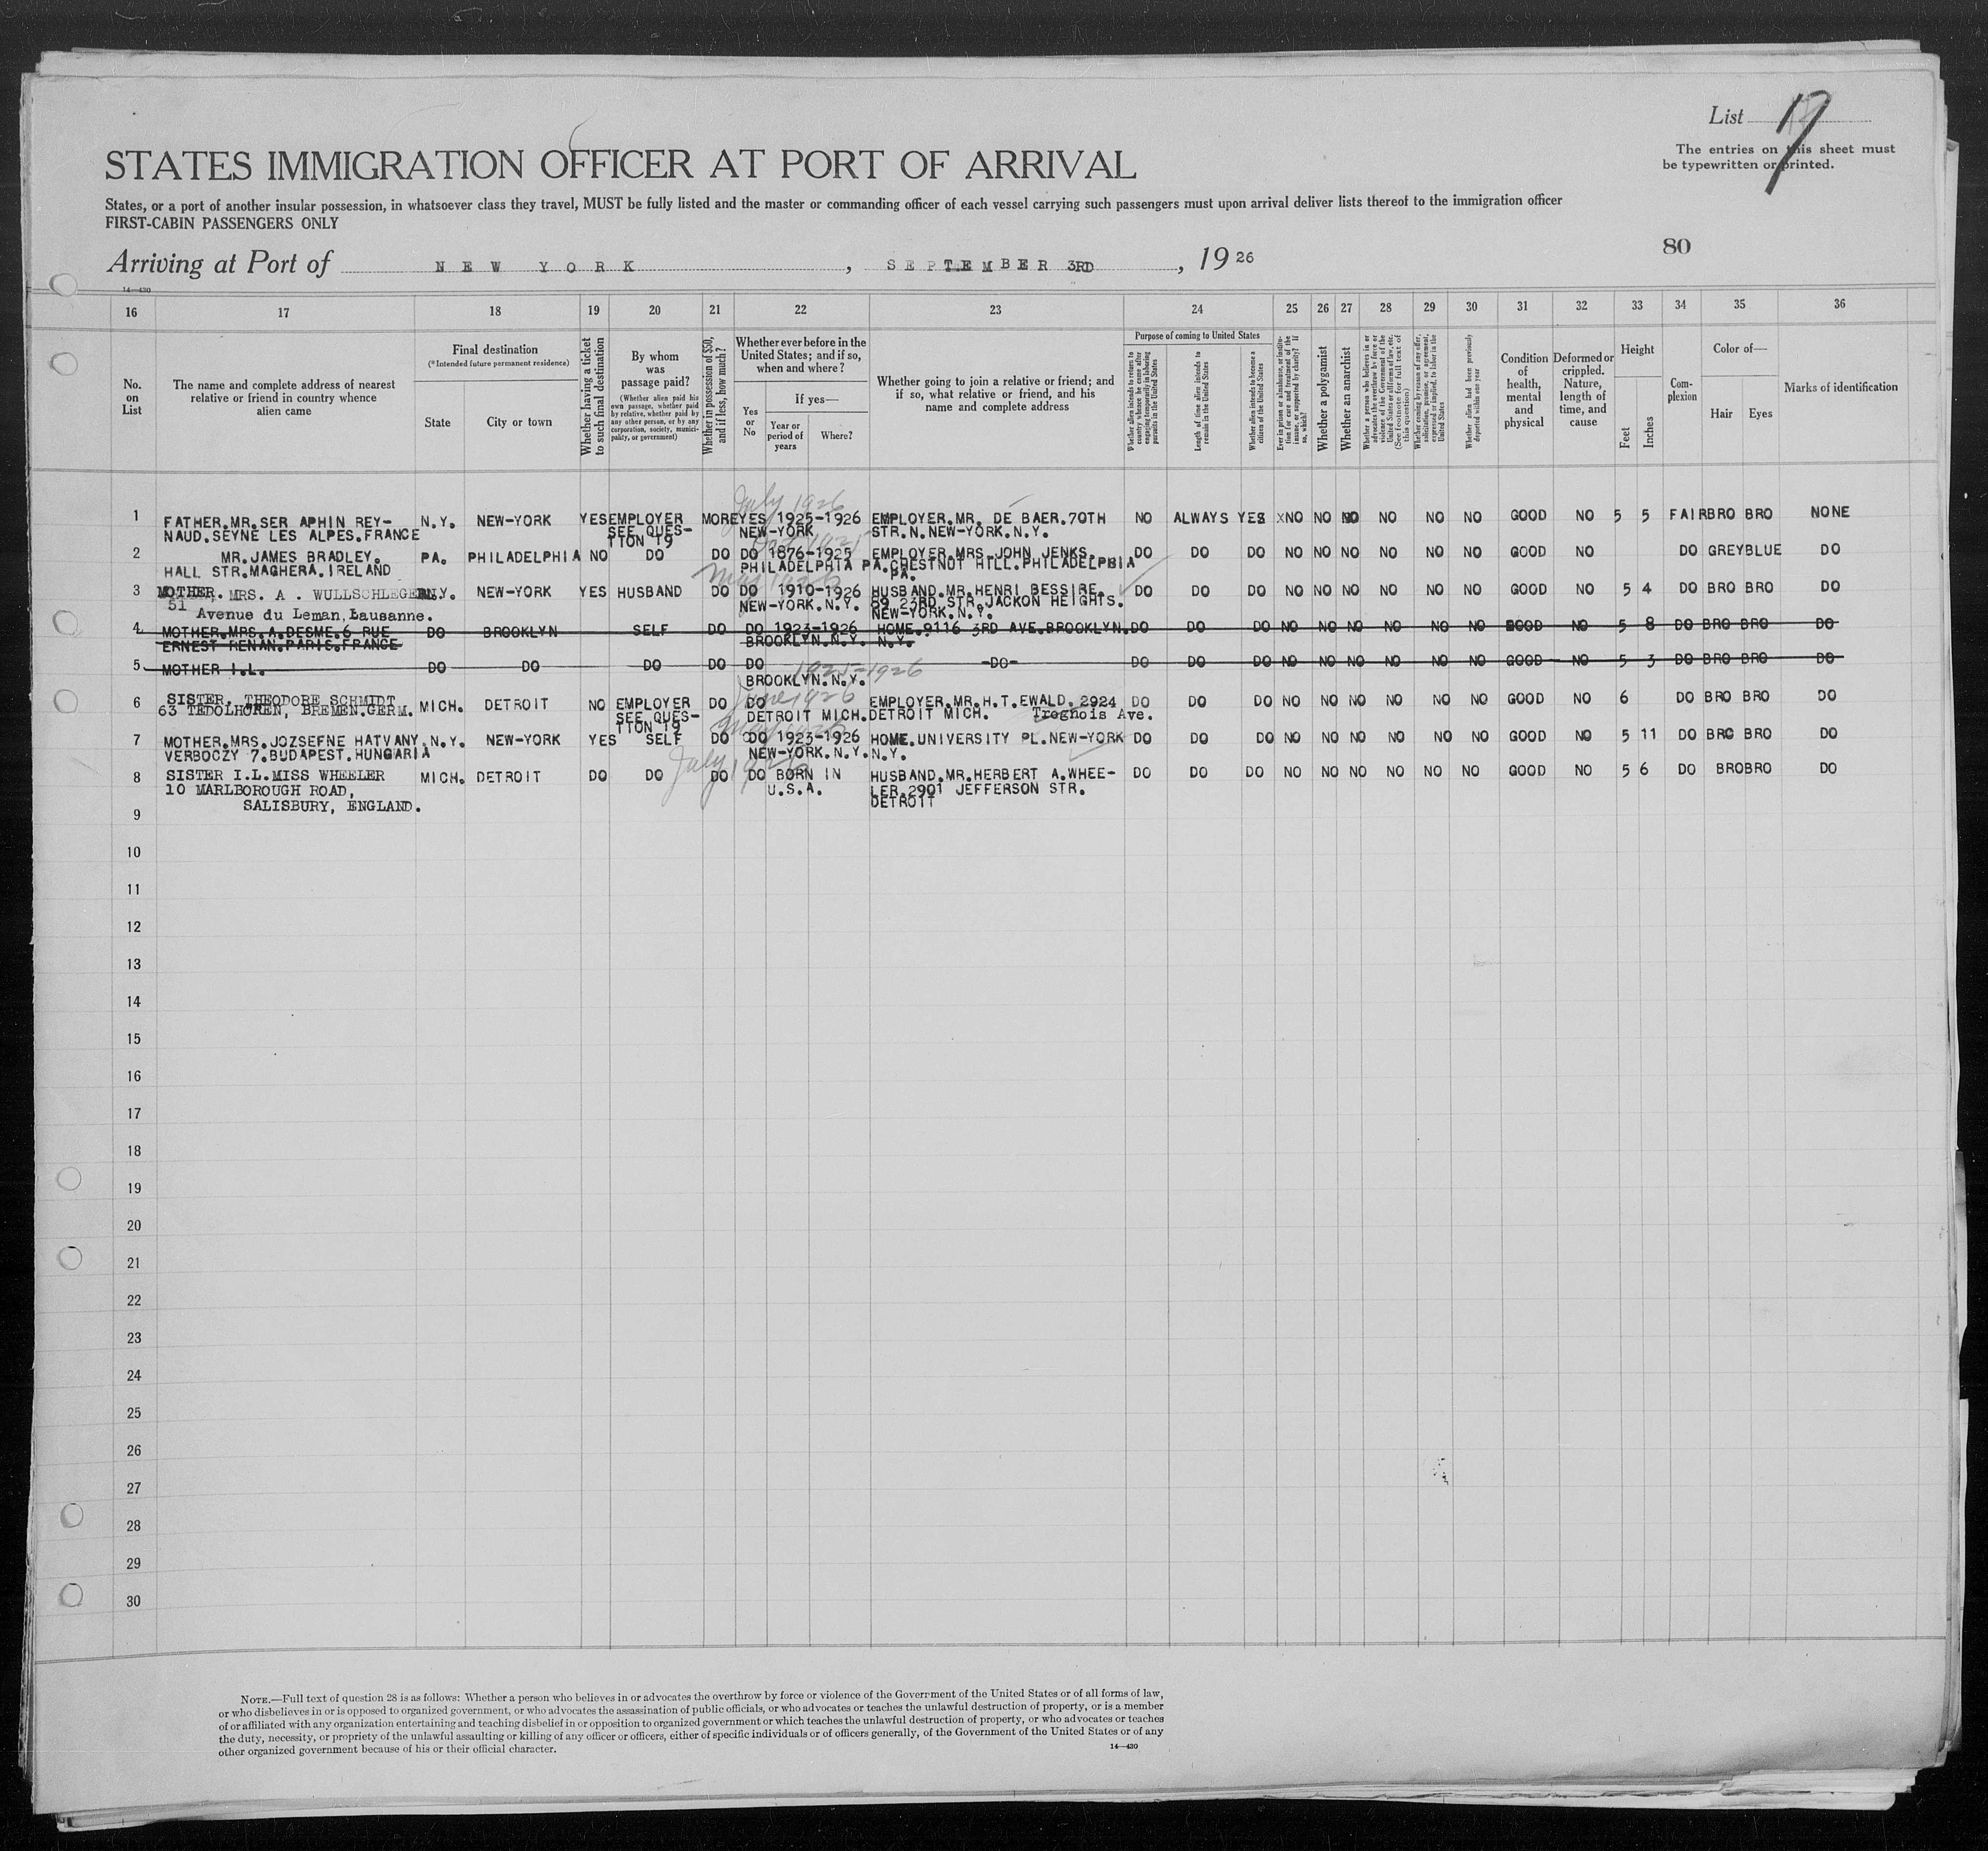 List 17
The entries on this sheet must
be typewritten or printed.
STATES IMMIGRATION OFFICER AT PORT OF ARRIVAL
States, or a port of another insular possession, in whatsoever class they travel, MUST be fully listed and the master or commanding officer of each vessel carrying such passengers must upon arrival deliver lists thereof to the immigration officer
FIRST-CABIN PASSENGERS ONLY
80
Arriving at Port of NEW YORK, SEPTEMBER 3RD, 1926
14—430
16 17 18 19 20 21 22 23 24 25 26 27 28 29 30 31 32 33 34 35 36
No. on List
The name and complete address of nearest relative or friend in country whence alien came
Final destination
(*Intended future permanent residence)
State
City or town
Whether having a ticket to such final destination
By whom was passage paid?
(Whether alien paid his own passage, whether paid by relative, whether paid by any other person, or by any corporation, society, municipality, or government)
Whether in possession of $50, and if less, how much?
Whether ever before in the United States; and if so, when and where?
Yes or No
If yes—
Year or period of years
Where?
Whether going to join a relative or friend; and if so, what relative or friend, and his name and complete address
Purpose of coming to United States
Whether alien intends to return to country whence he came after engaging temporarily in laboring pursuits in the United States
Length of time alien intends to remain in the United States
Whether alien intends to become a citizen of the United States
Ever in prison or almshouse, or institution for care and treatment of the insane, or supported by charity? If so, which?
Whether a polygamist
Whether an anarchist
Whether a person who believes in or advocates the overthrow by force or violence of the Government of the United States or all forms of law, etc. (See footnote for full text of this question)
Whether coming by reason of any offer, solicitation, promise, or agreement, expressed or implied, to labor in the United States
Whether alien had been previously deported within one year
Condition of health, mental and physical
Deformed or crippled. Nature, length of time, and cause
Height
Feet
Inches
Complexion
Color of—
Hair
Eyes
Marks of identification
July 1926
1 FATHER.MR.SER APHIN REY- N.Y. NEW-YORK YES EMPLOYER MORE YES 1925-1926 EMPLOYER.MR. DE BAER.70TH NO ALWAYS YES XNO NO NO NO NO NO GOOD NO 5 5 FAIR BRO BRO NONE
NAUD.SEYNE LES ALPES.FRANCE SEE QUES- NEW-YORK STR.N.NEW-YORK.N.Y.
TION 19
2 MR.JAMES BRADLEY. PA. PHILADELPHIA NO DO DO DO 1876-1925 EMPLOYER.MRS.JOHN JENKS. DO DO DO NO NO NO NO NO NO GOOD NO DO GREY BLUE DO
HALL STR.MAGHERA.IRELAND PHILADELPHIA PA. CHESTNOT HILL.PHILADELPHIA
PA.
3 MOTHER. MRS. A . WULLSCHLEGER N.Y. NEW-YORK YES HUSBAND DO DO 1910-1926 HUSBAND.MR.HENRI BESSIRE. DO DO DO NO NO NO NO NO NO GOOD NO 5 4 DO BRO BRO DO
51 NEW-YORK.N.Y. 89 23RD.STR.JACKON HEIGHTS.
Avenue du Leman, Lausanne. NEW-YORK.N.Y.
4 MOTHER.MRS.A.DESME.6 RUE DO BROOKLYN SELF DO DO 1923-1926 HOME.9116 3RD AVE.BROOKLYN. DO DO DO NO NO NO NO NO NO GOOD NO 5 8 DO BRO BRO DO
ERNEST RENAN.PARIS.FRANCE BROOKLYN.N.Y. N.Y.
5 MOTHER I.L. DO DO DO DO DO 1921-1926 -DO- DO DO DO NO NO NO NO NO NO GOOD NO 5 3 DO BRO BRO DO
BROOKLYN.N.Y.
June 1926
6 SISTER, THEODORE SCHMIDT MICH. DETROIT NO EMPLOYER DO DO EMPLOYER.MR.H.T.EWALD. 2924 DO DO DO NO NO NO NO NO NO GOOD NO 6 DO BRO BRO DO
63 TEDOLHOREN, BREMEN.GERM. SEE QUES- DETROIT MICH. DETROIT MICH. Troghois Ave.
TION 19
7 MOTHER.MRS.JOZSEFNE HATVANY. N.Y. NEW-YORK YES SELF DO DO 1923-1926 HOME.UNIVERSITY PL.NEW-YORK DO DO DO NO NO NO NO NO NO GOOD NO 5 11 DO BRO BRO DO
VERBOCZY 7.BUDAPEST.HUNGARIA NEW-YORK.N.Y. N.Y.
July 1926
8 SISTER I.L.MISS WHEELER MICH. DETROIT DO DO DO DO BORN IN HUSBAND.MR.HERBERT A.WHEE- DO DO DO NO NO NO NO NO NO GOOD NO 5 6 DO BRO BRO DO
10 MARLBOROUGH ROAD, U.S.A. LER.2901 JEFFERSON STR.
SALISBURY, ENGLAND. DETROIT
9
10
11
12
13
14
15
16
17
18
19
20
21
22
23
24
25
26
27
28
29
30
NOTE.—Full text of question 28 is as follows: Whether a person who believes in or advocates the overthrow by force or violence of the Government of the United States or of all forms of law,
or who disbelieves in or is opposed to organized government, or who advocates the assassination of public officials, or who advocates or teaches the unlawful destruction of property, or is a member
of or affiliated with any organization entertaining and teaching disbelief in or opposition to organized government or which teaches the unlawful destruction of property, or who advocates or teaches
the duty, necessity, or propriety of the unlawful assaulting or killing of any officer or officers, either of specific individuals or of officers generally, of the Government of the United States or of any
other organized government because of his or their official character.
14—430